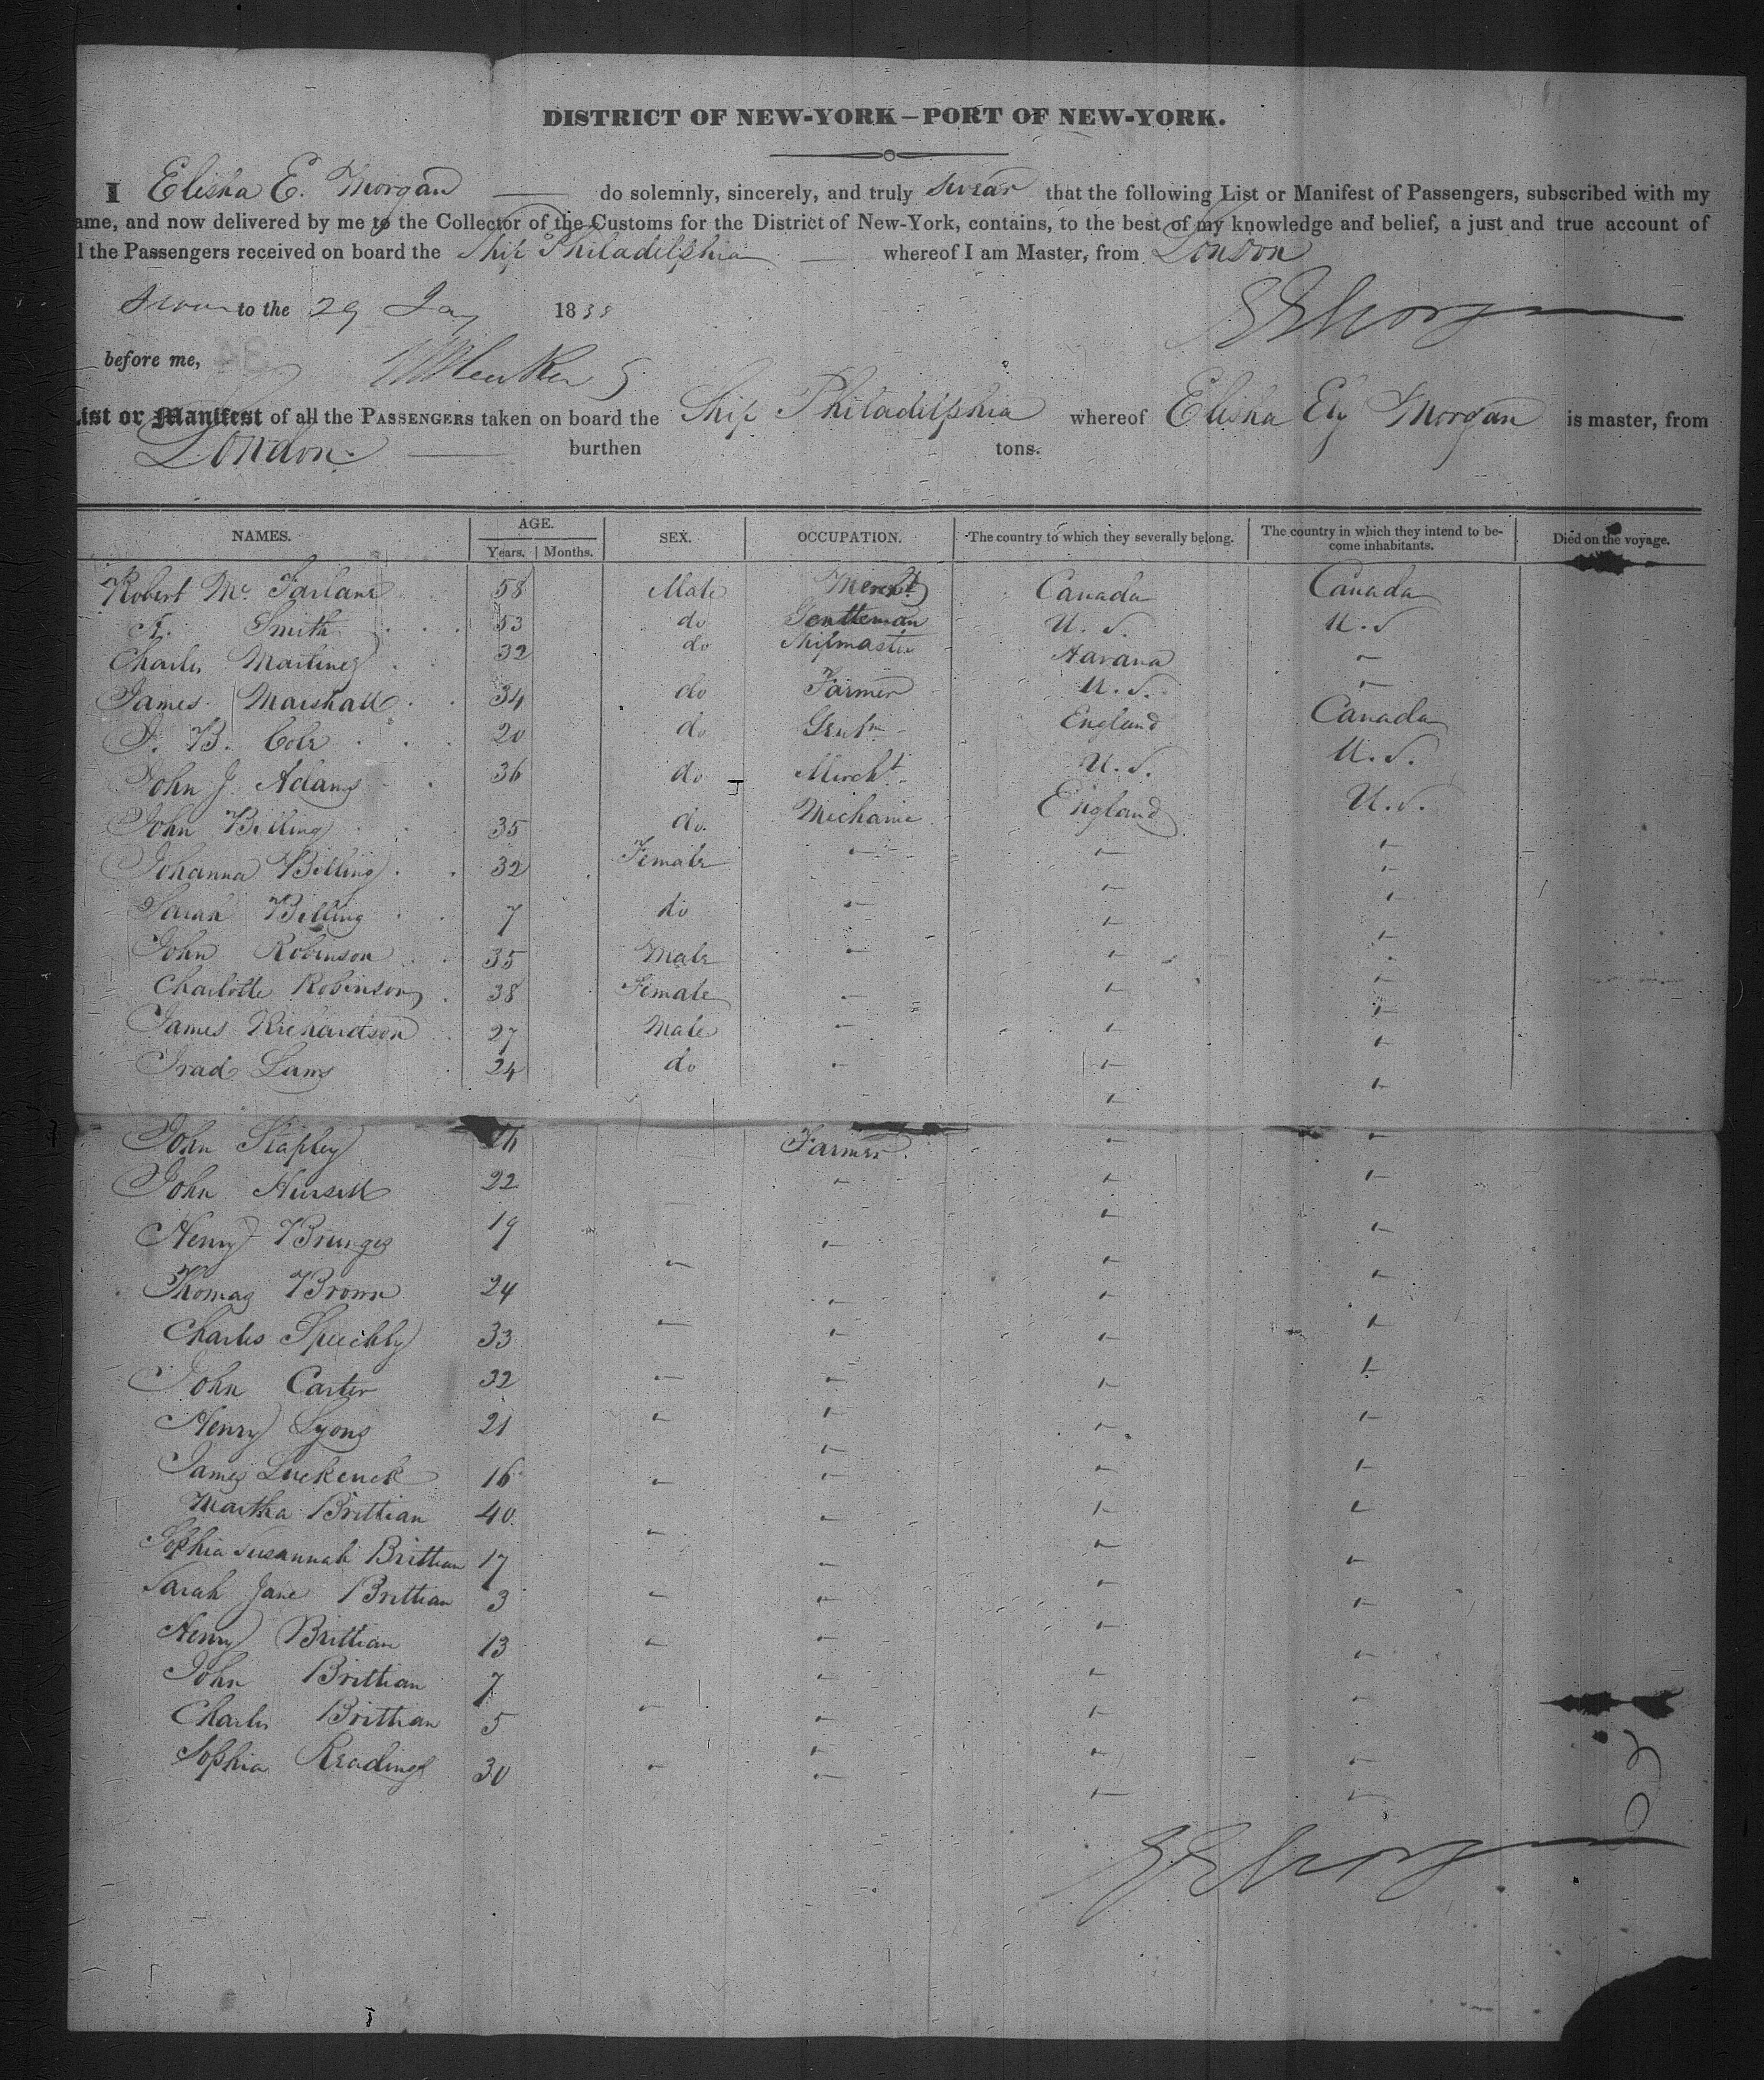 DISTRICT OF NEW-YORK—PORT OF NEW-YORK.
I Elisha E. Morgan — do solemnly, sincerely, and truly swear that the following List or Manifest of Passengers, subscribed with my
ame, and now delivered by me to the Collector of the Customs for the District of New-York, contains, to the best of my knowledge and belief, a just and true account of
l the Passengers received on board the Ship Philadelphia — whereof I am Master, from London
Sworn to the 29 Jay 1838 E E Morgan
before me,
List or Manifest of all the PASSENGERS taken on board the Ship Philadelphia whereof Elisha Ely Morgan is master, from
London. — burthen tons.
NAMES. AGE. Years. Months. SEX. OCCUPATION. The country to which they severally belong. The country in which they intend to become inhabitants. Died on the voyage.
Robert Mc Farlane 58 Male Mercht Canada Canada
Smith 53 do Gentleman U.S. U.S
Charles Martinez 32 do Shipmaster Havana -
James Marshall 34 do Farmer U.S. -
J. B. Cole 20 do Gentm England Canada
John J. Adams 36 do Mercht U.S. U.S.
John Billing 35 do. Mechanic England U.S.
Johanna Billing 32 Female - - -
Sarah Billing 7 do - - -
John Robinson 35 Male - - -
Charlotte Robinson 38 Female - - -
James Richardson 27 Male - - -
Irad Lams 24 do - - -
John Stapley 26 Farmer. - -
John Hursell 22 - - -
Henry Brunges 19 - - -
Thomas Brown 24 - - - -
Charles Speechly 33 - - - -
John Carter 32 - - - -
Henry Lyons 21 - - - -
James Luckcuck 16 - - - -
Martha Brittian 40 - - -
Sophia Susannah Brittian 17 - - - -
Sarah Jane Brittian 3 - - - -
Henry Brittian 13 - - - -
John Brittian 7 - - -
Charles Brittian 5 - - - -
Sophia Reading 30 - - - -
E E Morgan